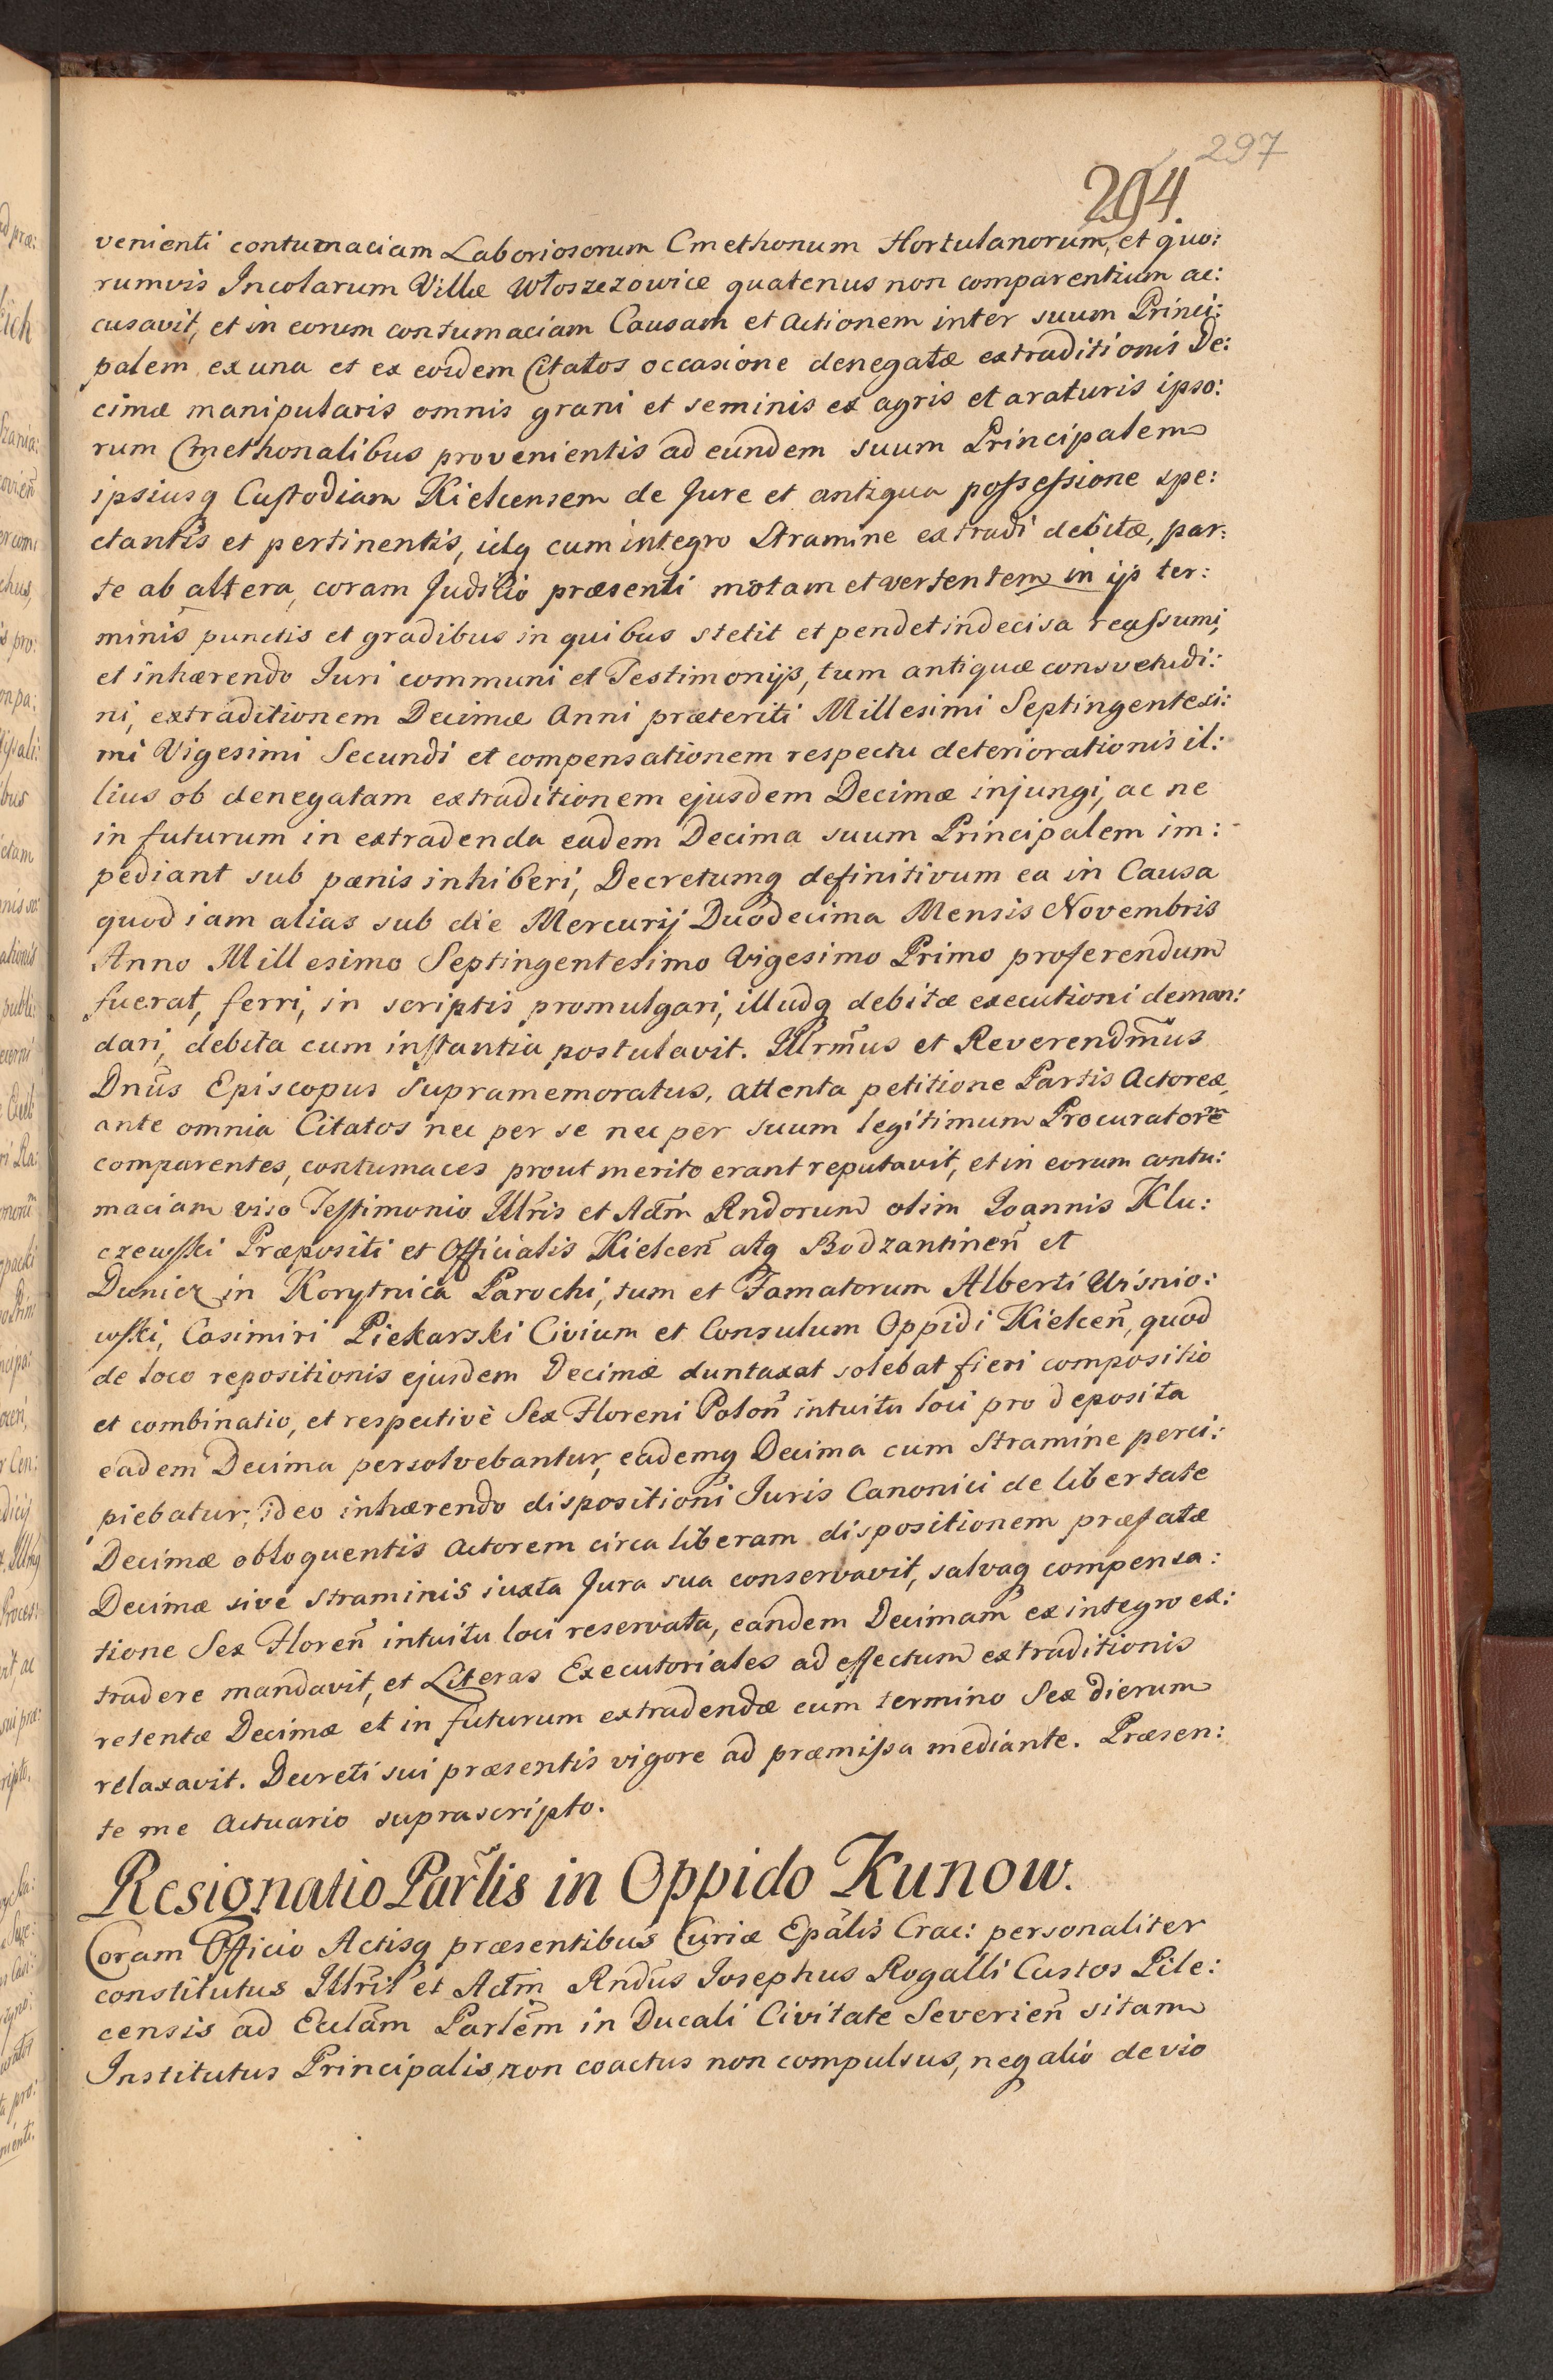 297
294.
venienti contumaciam Laboriosorum Cmethonum Hortulanorum, et quo:
rumvis Incolarum Villæ Włoszezowice quatenus non comparentium ac:
cusavit, et in eorum contumaciam Causam et Actionem inter suum Princi:
palem ex una et ex eosdem Citatos occasione denegatæ extraditionis De:
cimæ manipularis omnis grani et seminis ex agris et araturis ipso:
rum Cmethonalibus provenientis ad eundem suum Principalem
ipsiusq Custodiam Kielcensem de Jure et antiqua possessione spe:
ctantis et pertinentis, idq cum integro Stramine extradi debitæ, par:
te ab altera, coram Judicio præsenti motam et vertentem in ijs ter:
minis punctis et gradibus in quibus stetit et pendet indecisa reassumi,
et inhærendo Juri communi et Testimonijs, tum antiquæ consvetudi:
ni, extraditionem Decimæ Anni præteriti Millesimi Septingentesi:
mi Vigesimi Secundi et compensationem respectu deteriorationis il:
lius ob denegatam extraditionem ejusdem Decimæ injungi, ac ne
in futurum in extradenda eadem Decima suum Principalem im:
pediant sub pœnis inhiberi, Decretumq definitivum ea in Causa
quod iam alias sub die Mercurij Duodecima Mensis Novembris
Anno Millesimo Septingentesimo Vigesimo Primo proferendum
fuerat, ferri, in scriptis promulgari, illudq debitæ executioni deman:
dari, debita cum instantia postulavit. Illrm̃us et Reverendm̃us
Dnũs Episcopus Supramemoratus, attenta petitione Partis Actoreæ,
ante omnia Citatos nec per se nec per suum legitimum Procuratorẽ
comparentes, contumaces prout merito erant reputavit, et in eorum contu:
maciam viso Testimonio Illr̃is et Adm̃ Rndorum olim Joannis Klu:
czewski Præpositi et Officialis Kielceñ atq Bodzantineñ et
Dunicz in Korytnica Parochi, tum et Famatorum Alberti Wisnio:
wski, Casimiri Piekarski Civium et Consulum Oppidi Kielceñ, quod
de loco repositionis ejusdem Decimæ duntaxat solebat fieri compositio
et combinatio, et respectivè Sex Floreni Poloñ intuitu loci pro deposita
eadem Decima persolvebantur, eademq Decima cum Stramine perci:
piebatur; ideo inhærendo dispositioni Juris Canonici de libertate
Decimæ obloquentis Actorem circa liberam dispositionem præfatæ
Decimæ sive Straminis iuxta Jura sua conservavit, salvaq compensa:
tione Sex Floreñ intuitu loci reservata, eandem Decimam ex integro ex:
tradere mandavit, et Literas Executoriales ad effectum extraditionis
retentæ Decimæ et in futurum extradendæ cum termino Sex dierum
relaxavit. Decreti sui præsentis vigore ad præmissa mediante. Præsen:
te me Actuario suprascripto.
Resignatio Par̃lis in Oppido Kunow.
Coram Officio Actisq præsentibus Curiæ Epãlis Crac: personaliter
constitutus Illr̃is et Adm̃ Rndũs Josephus Rogalli Custos Pile:
censis ad Ecclãm Parlẽm in Ducali Civitate Severieñ sitam
Institutus Principalis, non coactus non compulsus, neq alio devio